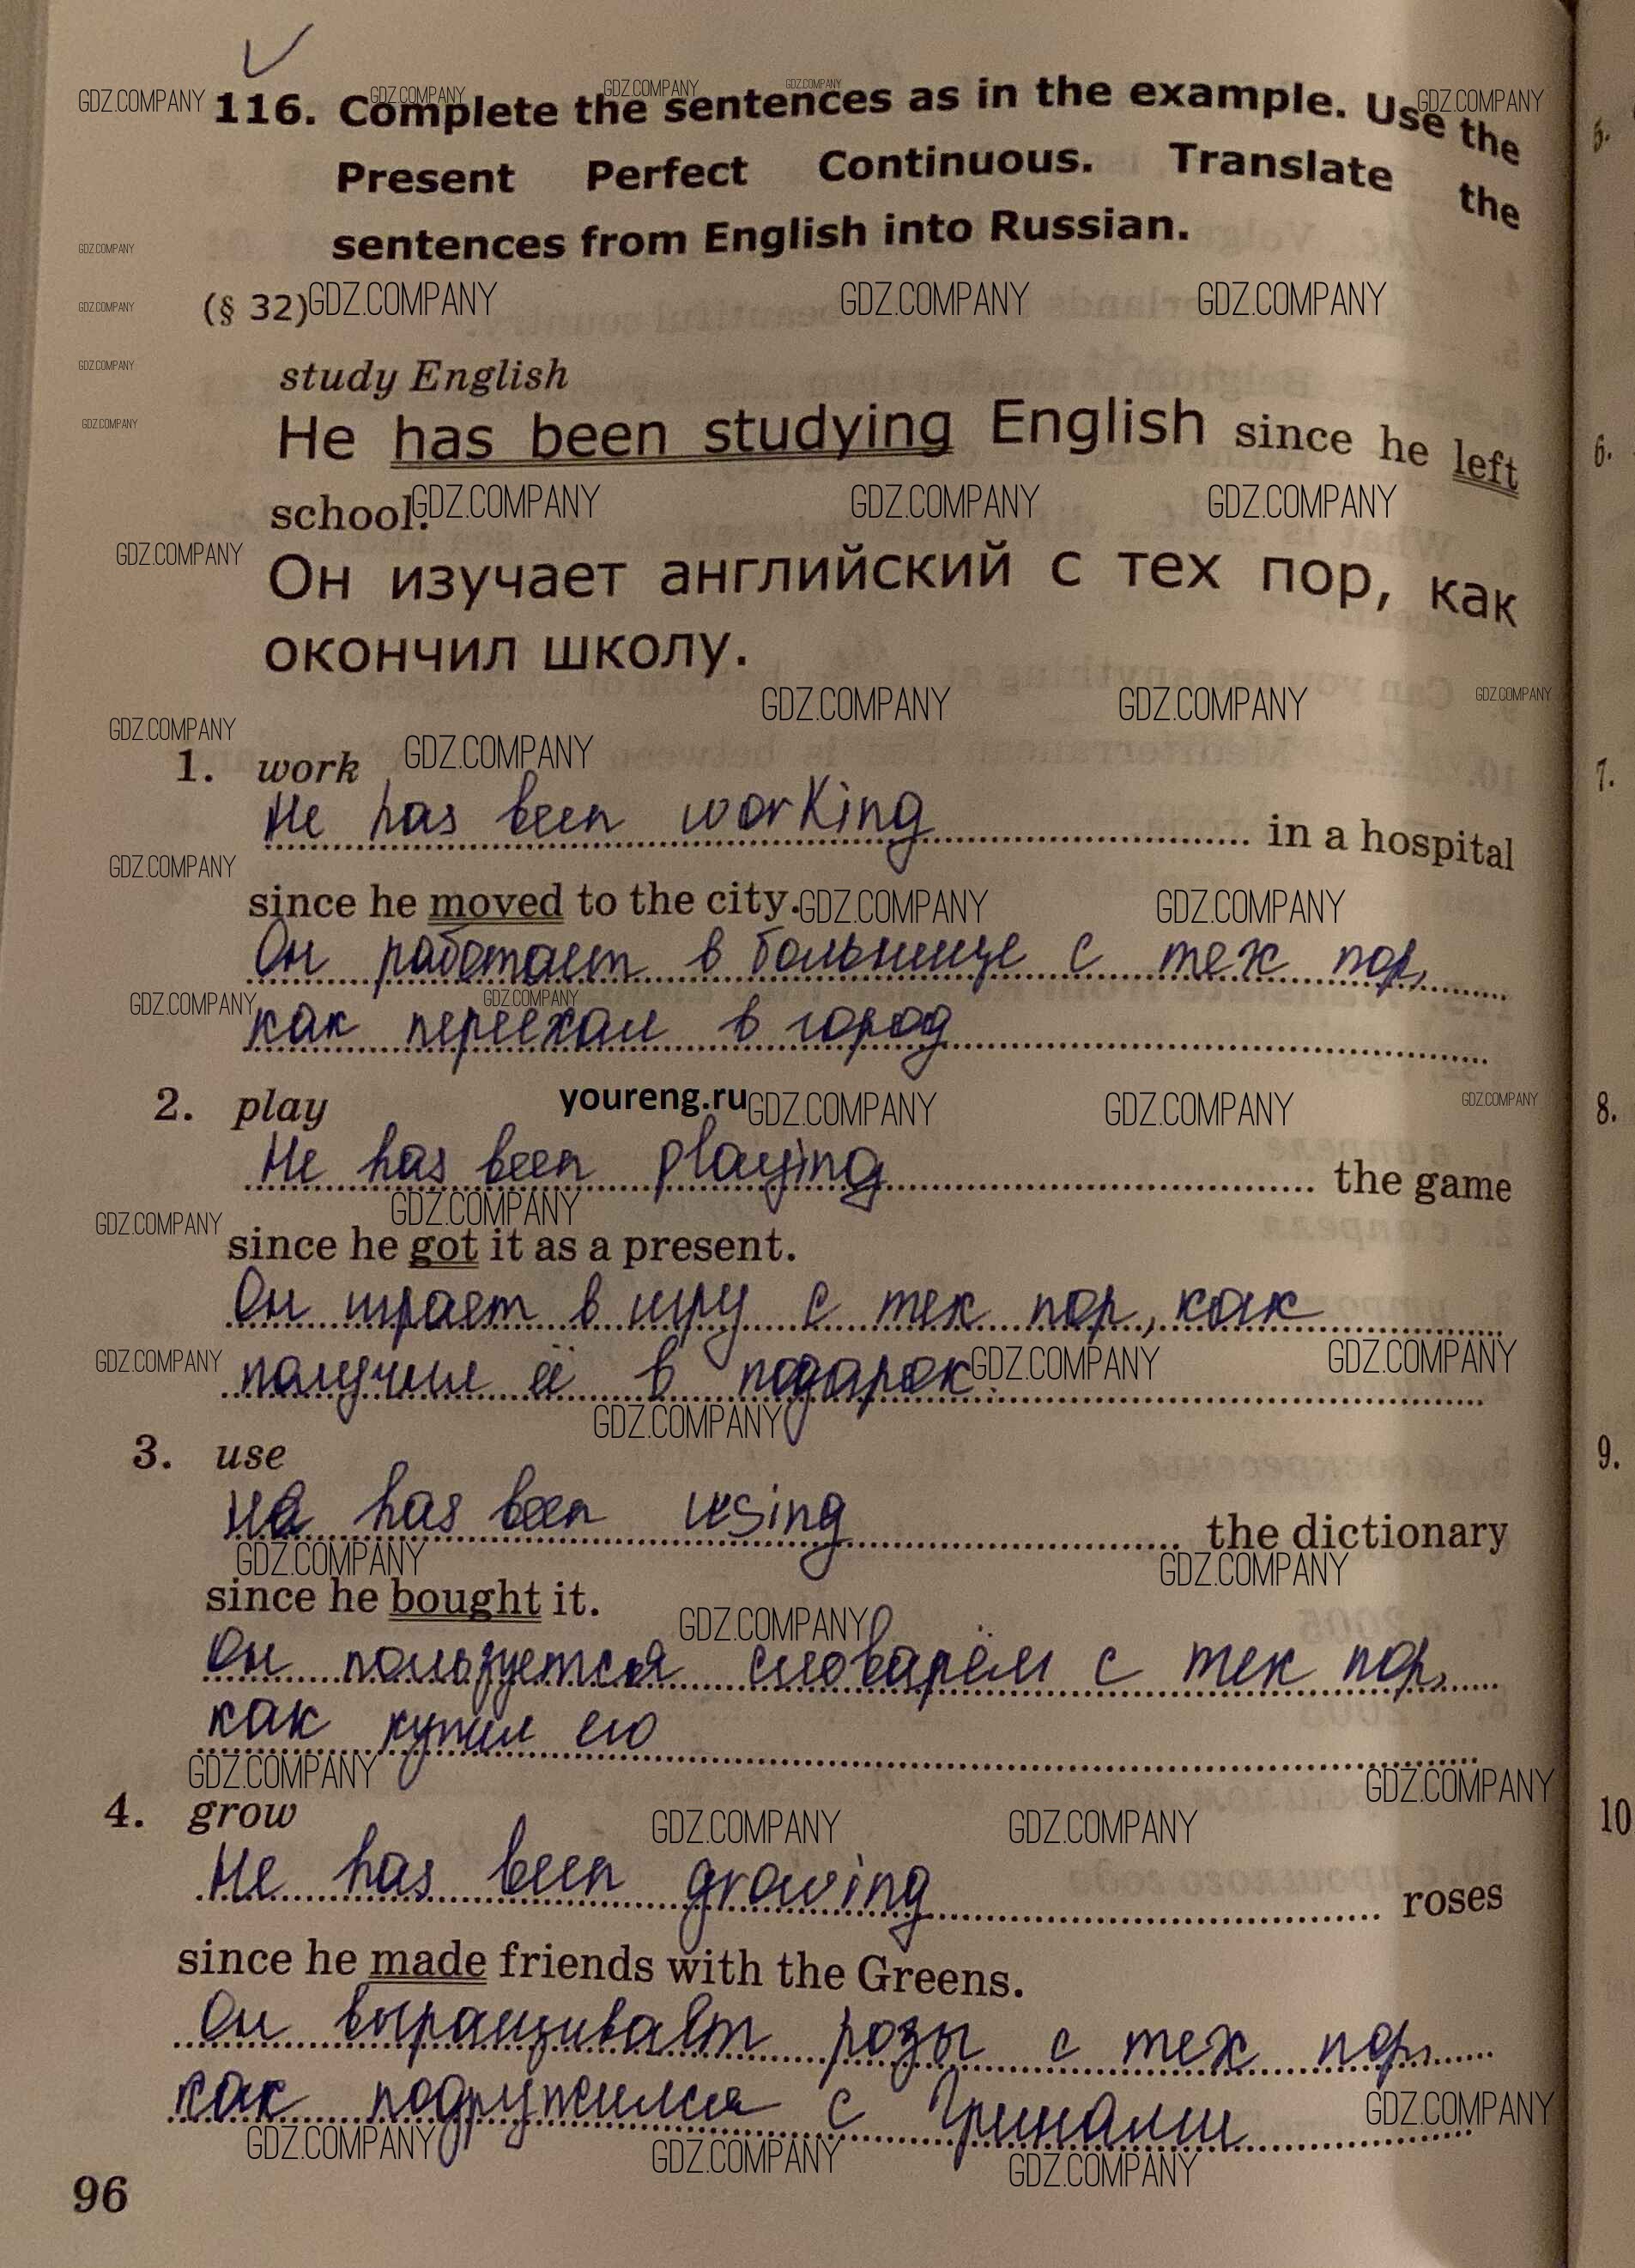 116. Complete the sentences as in the example. Use the
Present Perfect Continuous. Translate the
sentences from English into Russian.
(§ 32)
study English
He has been studying English since he left
school.
Он изучает английский с тех пор, как
окончил школу.
1. work
He has been working in a hospital
since he moved to the city.
Он работает в больнице с тех пор,
как переехал в город
2. play
youreng.ru
He has been playing the game
since he got it as a present.
Он играет в игру с тех пор, как
получил её в подарок.
3. use
He has been using the dictionary
since he bought it.
Он пользуется словарём с тех пор,
как купил его
4. grow
He has been growing roses
since he made friends with the Greens.
Он выращивает розы с тех пор,
как подружился с Гринами
96
5.
6.
7.
8.
9.
10
GDZ.COMPANY